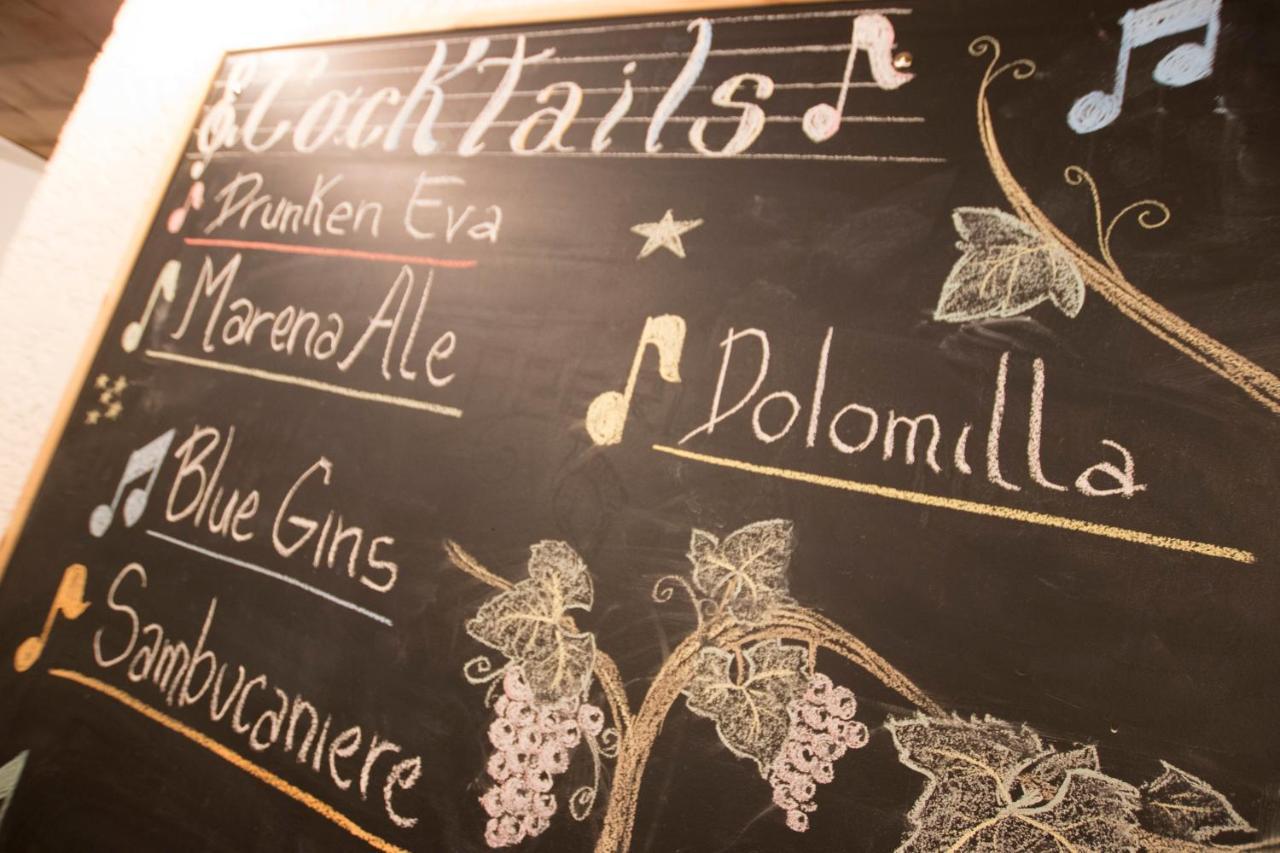 Cocktails
Drunken Eva
Marena Ale
Blue Gins
Sambucaniere
Dolomilla